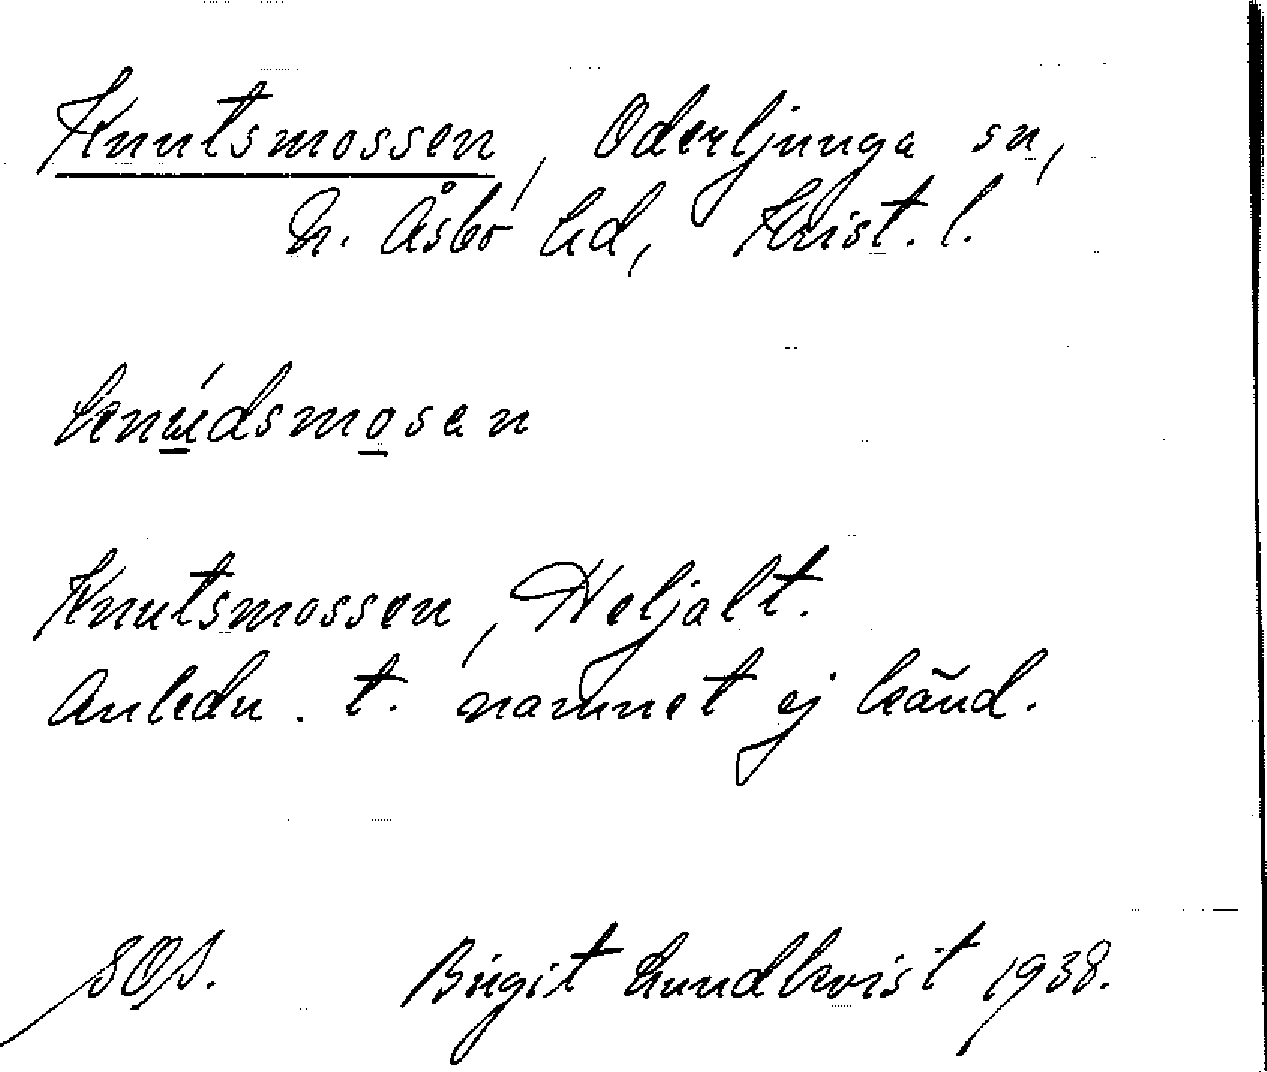 Knutsmossen, Oderljunga sn,
N. Åsbo hd, Krist. l.
knúdsmosen
Knutsmossen, Heljalt.
Anledn. t. namnet ej känd.
SOS. Birgit Lundkvist 1938.